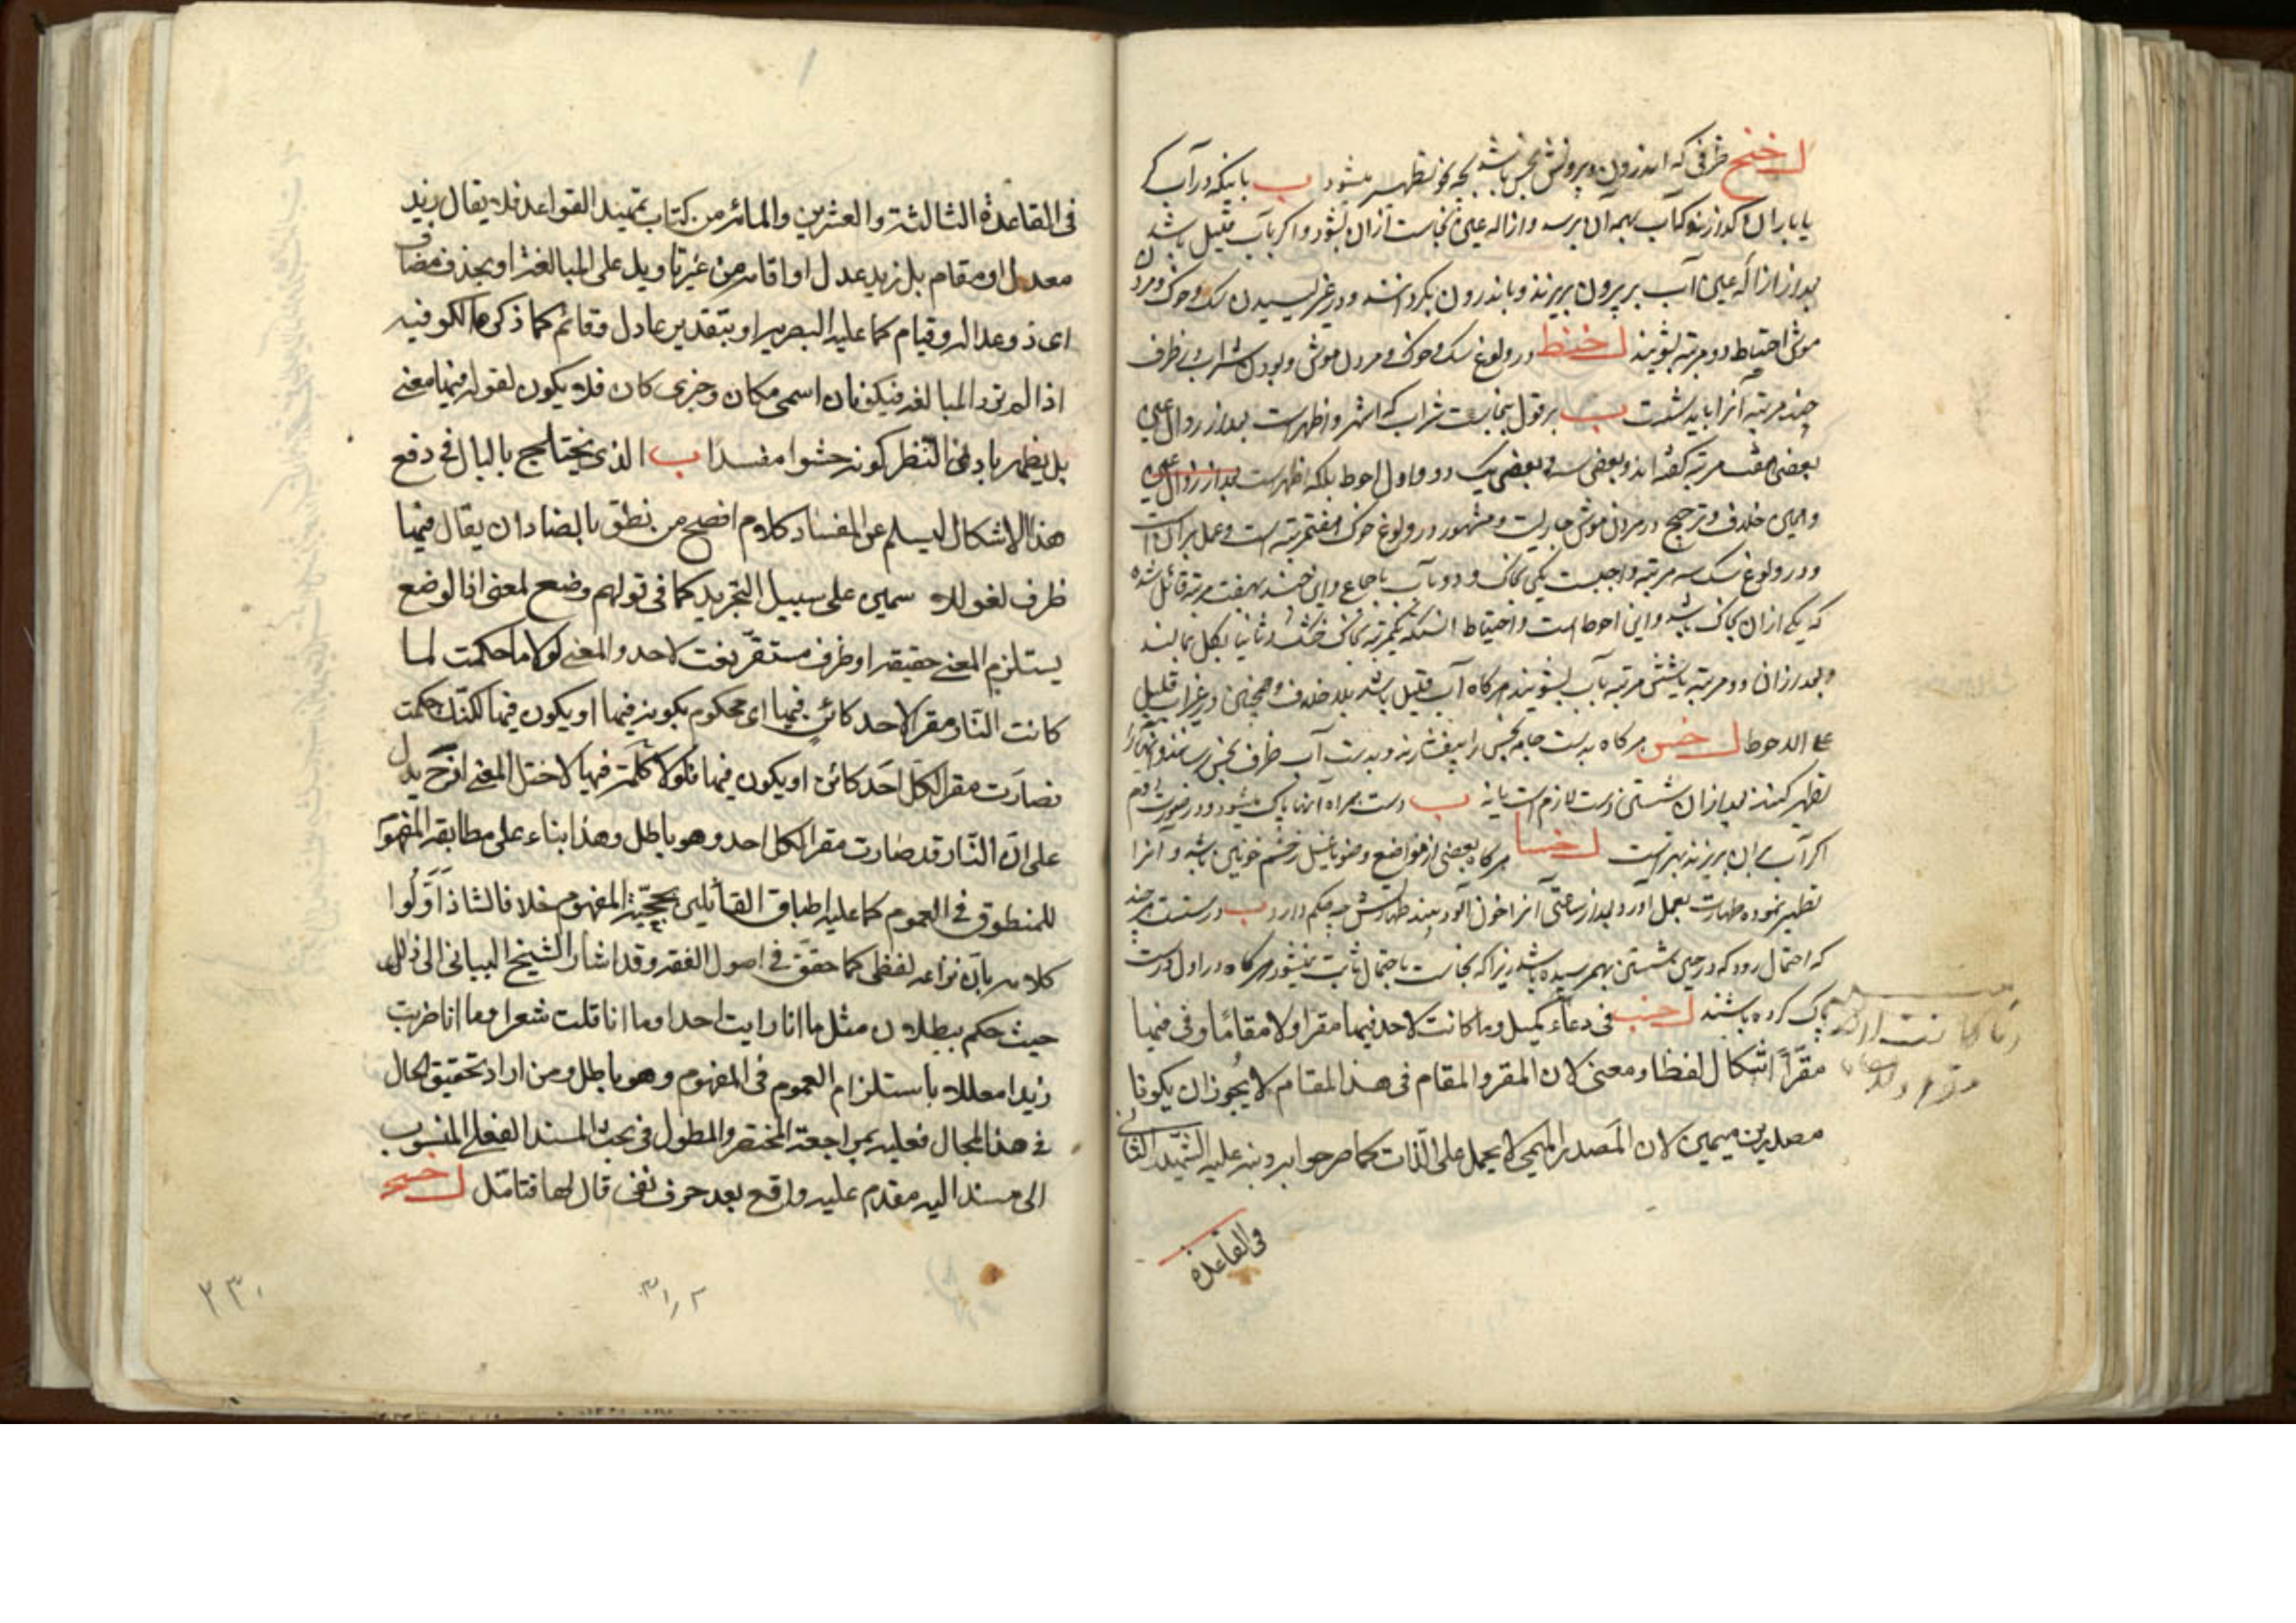 ل خنح ظرفی که اندرون و بیرونش نجس باشد بچه نحو تطهیر میشود ب باینکه در آب کر
یا باران گذارند که آب بهمه آن برسد و ازاله عین نجاست از آن بشود و اگر بآب قلیل باشد
بعد از ازاله عین آب بر بیرون بریزند و باندرون بگردانند و در غیر لیسیدن سگ و خوک و مردن
موش احتیاطا دو مرتبه بشویند ل خنط در ولوغ سگ و خوک و مردن موش و بودن شراب در ظرف
چند مرتبه آنرا باید شست ب بر قول بنجاست شراب که اشهر و اظهر است بعد از زوال عین
بعضی هفت مرتبه گفته اند و بعضی سه و بعضی یک دو و اول احوط بلکه اظهر است بعد از زوال عین
و همین خلاف و ترجیح در مردن موش جاریست و مشهور در ولوغ خوک هفت مرتبه است و عمل بر آن است
و در ولوغ سگ سه مرتبه واجبست یکی بخاک و دو بآب باجماع و ابن جنید بهفت مرتبه قائل شده
که یکی از آن بخاک باشد و این احوط است و احتیاط آنستکه یکمرتبه بخاک خشک و ثانیا بگل بمالند
و بعد از آن دو مرتبه یا شش مرتبه بآب بشویند هرگاه آب قلیل باشد بلا خلاف و همچنین در غیر آب قلیل
علی الاحوط ل خس هرگاه بدست جامه نجس را بیفشارند و بدست آب ظرف نجس رسانند و آنها را
تطهیر کنند بعد از آن شستن دست لازم است یا نه ب دست همراه آنها پاک میشود و در صورت دوم
اگر آب بر آن بریزند بهتر است ل خسا هرگاه بعضی از مواضع وضو یا غسل زخم خونین باشد و آنرا
تطهیر نموده طهارت بعمل آورد و بعد از ساعتی آنرا خون آلود بیند طهارتش چه حکم دارد ب درست است هر چند
که احتمال رود که در حین شستن بهم رسیده باشد زیرا که نجاست باحتمال ثابت نمیشود هرگاه در اول درست
پاک کرده باشند ل خسب فی دعاء کمیل و ما کانت لاحد فیها مقرا و لا مقاما و فی فیها
مقرّاً اشکال لفظا و معنی لان المقر و المقام فی هذا المقام لا یجوز ان یکونا
مصدرین میمین لان المصدر المیمی لا یحمل علی الذات کما صرحوا به و نبه علیه الشهید الثانی
فی القاعدة
فی القاعدة الثالثة و العشرین و المائة من کتاب تمهید القواعد فلا یقال زید
معدل او مقام بل زید عدل او اقامه من غیر تاویل علی المبالغة او بحذف مضاف
ای ذو عدالة و قیام کما علیه البصریه او بتقدیر عادل و قائم کما ذکره الکوفیه
اذا لم ترد المبالغه فیکونان اسمی مکان و خبری کان فلا یکون لقوله فیها معنی
بل یظهر بادنی النظر کونه حشوا مفسدا ب الذی یختلج بالبال فی دفع
هذا الاشکال لیسلم عن الفساد کلام افصح من نطق بالضاد ان یقال فیها
ظرف لغو للا سمین علی سبیل التجرید کما فی قولهم وضع لمعنی اذ الوضع
یستلزم المعنی حقیقه او ظرف مستقر نعت لاحد و المعنی لولا ما حکمت لما
کانت النار مقرا لاحد کائن فیها ای محکوم بکونه فیها او یکون فیها لکنّک حکمت
فصارت مقرا لکل احد کائن او یکون فیها فلولا کلمة فیها لاختل المعنی اذ ح یدل
علی ان النّار قد صارت مقرا لکل احد و هو باطل و هذا بناء علی مطابقه المفهوم
للمنطوق فی العموم کما علیه اطباق القائلین بحجیّة المفهوم خلافا لشاذ اوّلوا
کلامه بان نزاعه لفظی کما حقق فی اصول الفقه و قد اشار الشیخ البیانی الی ذلک
حیث حکم ببطلان مثل ما انا رایت احدا و ما انا قلت شعرا و ما انا ضربت
زیدا معللا باستلزام العموم فی المفهوم و هو باطل و من اراد تحقیق الحال
فی هذا المجال فعلیه بمراجعة المختصر و المطول فی بحث المسند الفعلی المنسوب
الی مسند الیه مقدم علیه واقع بعد حرف نفی قال لها فتامّل ل خسج
۲۳۰